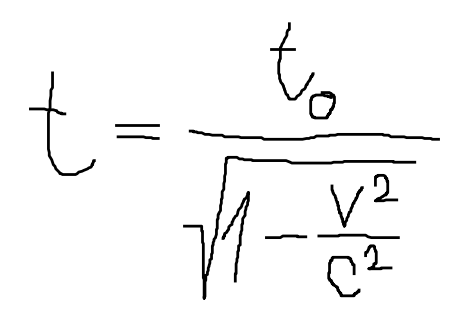 t = t₀ / √(1 - v²/c²)